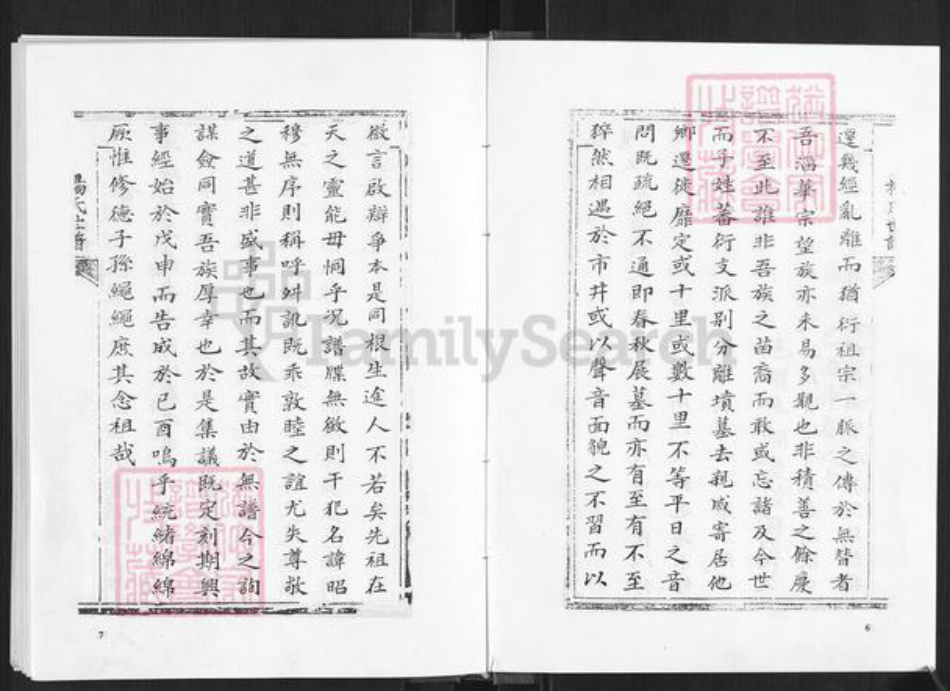 遷幾經亂離而猶衍祖宗一脈之傳於無替者
吾淄華宗望族亦未易多觀也非積善之餘慶
不至此誰非吾族之苗裔而敢或忘諸及今世
而子姓蕃衍支派別分離墳墓去親戚寄居他
鄉遷徙靡定或十里或數十里不等平日之音
問既疏絕不通即春秋展墓而亦有至有不至
猝然相遇於市井或以聲音面貌之不習而以
微言啟辯爭本是同根生途人不若矣先祖在
天之靈能毋恫乎況譜牒無徵則干犯名諱昭
穆無序則稱呼舛訛既乖敦睦之誼尤失尊敬
之道甚非盛事也而其故實由於無譜今之詢
謀僉同實吾族厚幸也於是集議既定刻期興
事經始於戊申而告成於己酉嗚乎統緒綿綿
厥惟修德子孫繩繩庶其念祖哉
氏世譜
6
7
FamilySearch